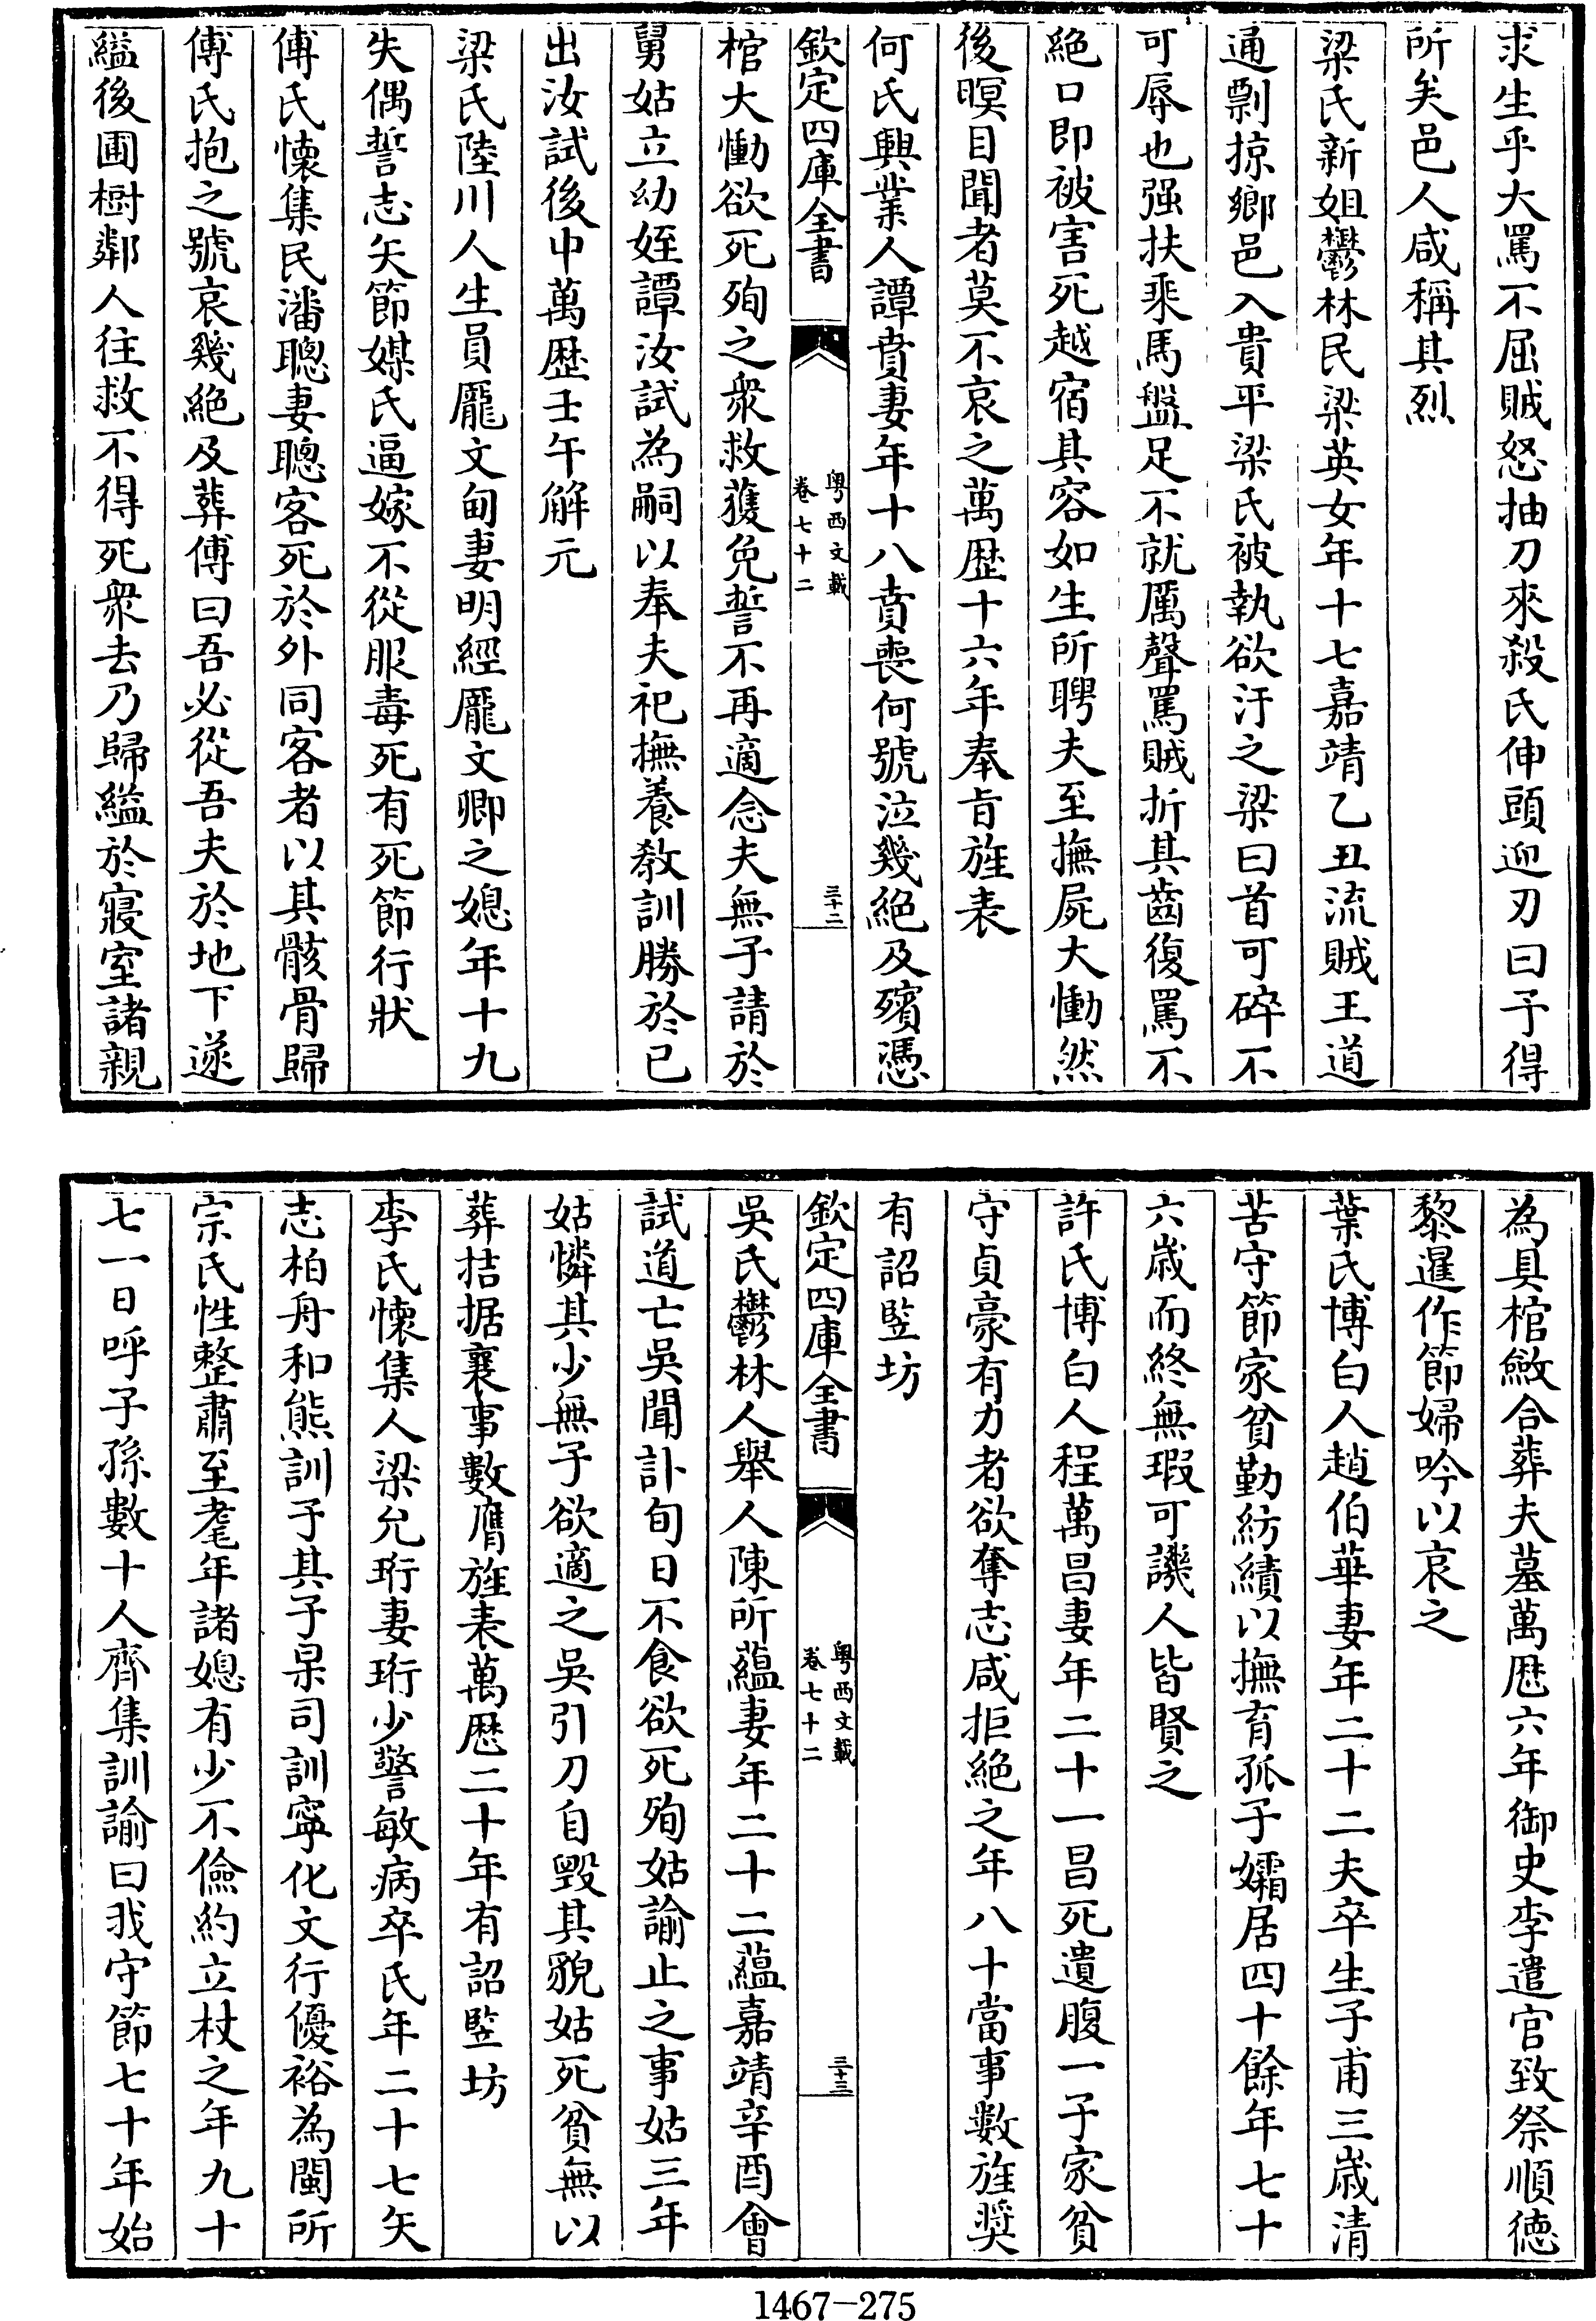 求生乎大罵不屈賊怒抽刀來殺氏伸頭迎刃曰予得
所矣邑人咸稱其烈
梁氏新姐鬱林民梁英女年十七嘉靖乙丑流賊王道
通剽掠鄉邑入貴平梁氏被執欲汙之梁曰首可碎不
可辱也强扶乘馬盤足不就厲聲罵賊折其齒復罵不
絕口即被害死越宿其容如生所聘夫至撫屍大慟然
後瞑目聞者莫不哀之萬歴十六年奉旨旌表
何氏興業人譚賁妻年十八賁喪何號泣幾絕及殯憑
欽定四庫全書
粤西文載
卷七十二
三十二
棺大慟欲死殉之衆救獲免誓不再適念夫無子請於
舅姑立幼姪譚汝試為嗣以奉夫祀撫養教訓勝於已
出汝試後中萬歴壬午解元
梁氏陸川人生員龎文甸妻明經龎文卿之媳年十九
失偶誓志矢節媒氏逼嫁不從服毒死有死節行狀
傅氏懷集民潘聰妻聰客死於外同客者以其骸骨歸
傅氏抱之號哀幾絕及葬傅曰吾必從吾夫於地下遂
縊後圃樹鄰人往救不得死衆去乃歸縊於寢室諸親
為具棺斂合葬夫墓萬歴六年御史李遣官致祭順德
黎暹作節婦吟以哀之
葉氏博白人趙伯華妻年二十二夫卒生子甫三歲清
苦守節家貧勤紡績以撫育孤子孀居四十餘年七十
六歲而終無瑕可譏人皆賢之
許氏博白人程萬昌妻年二十一昌死遺腹一子家貧
守貞豪有力者欲奪志咸拒絕之年八十當事數旌奬
有詔豎坊
欽定四庫全書
粤西文載
卷七十二
三十三
吳氏鬱林人舉人陳所蘊妻年二十二蘊嘉靖辛酉會
試道亡吳聞訃旬日不食欲死殉姑諭止之事姑三年
姑憐其少無子欲適之吳引刀自毀其貌姑死貧無以
葬拮据襄事數膺旌表萬歴二十年有詔豎坊
李氏懷集人梁允珩妻珩少警敏病卒氏年二十七矢
志柏舟和熊訓子其子杲司訓寧化文行優裕為閩所
宗氏性整肅至耄年諸媳有少不儉約立杖之年九十
七一日呼子孫數十人齊集訓諭曰我守節七十年始
1467-275